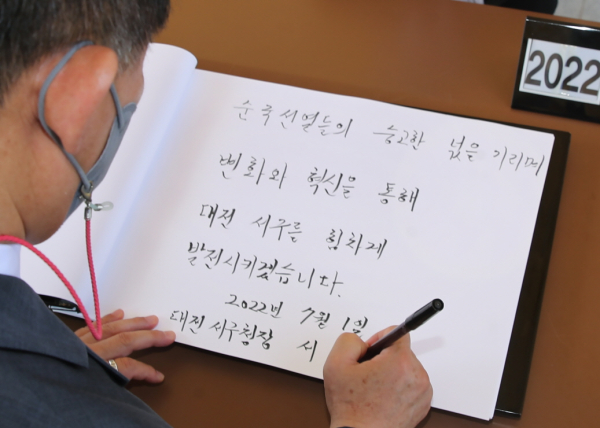 2022
순국선열들의 숭고한 넋을 기리며
변화와 혁신을 통해
대전 서구를 힘차게
발전시키겠습니다.
2022년 7월 1일
대전 서구청장 서